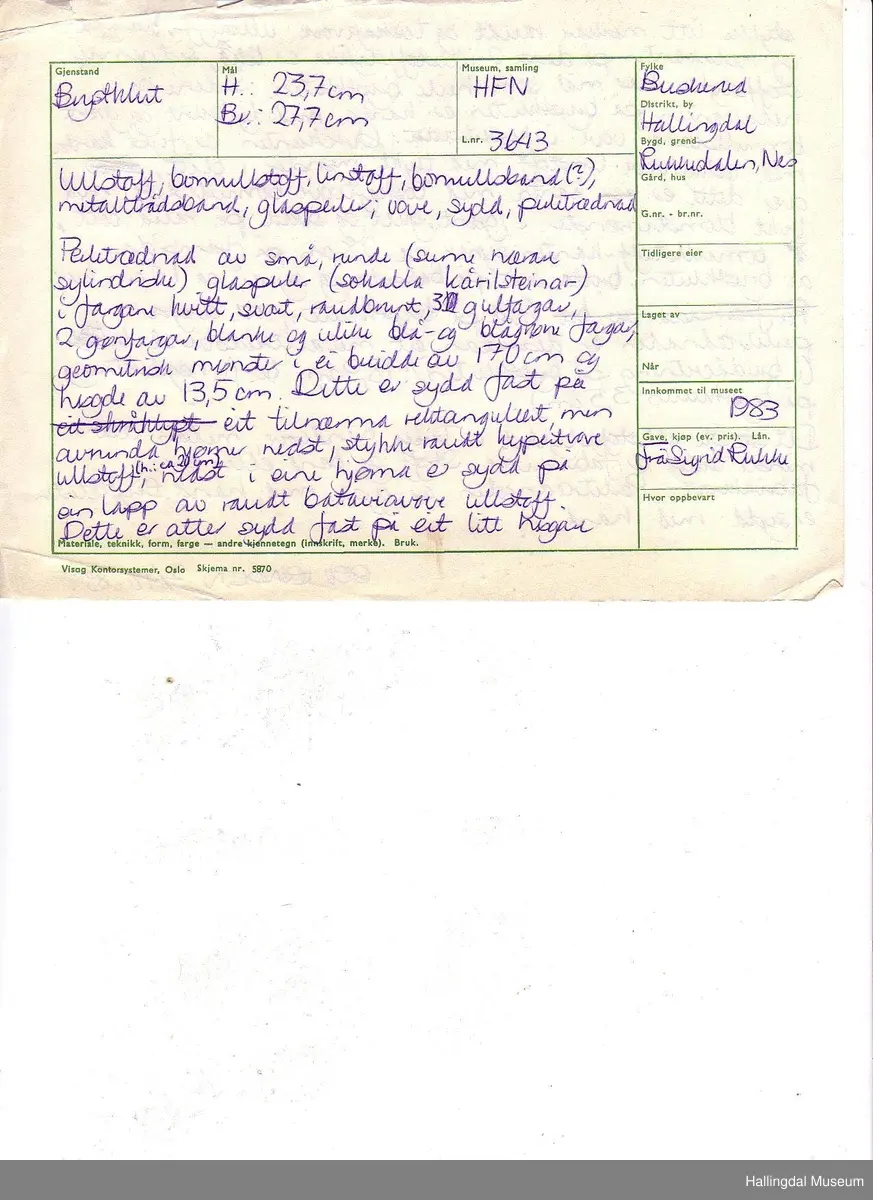 Gjenstand
Brystklut
Mål
H.: 23,7cm
Br.: 27,7cm
Museum, samling
HFN
L.nr. 3643
Fylke
Buskerud
Distrikt, by
Hallingdal
Bygd, grend
Rukkedalen, Nes
Gård, hus
G.nr. - br.nr.
Tidligere eier
Laget av
Når
Innkommet til museet
1983
Gave, kjøp (ev. pris). Lån.
Frå Sigrid Rukke
Hvor oppbevart
Ullstoff, bomullstoff, linstoff, bomullsband (?),
metalltrådsband, glasperler; vove, sydd, perletrædnad
Perletrædnad av små, runde (sume næran
sylindriske) glasperler (sokalla kårilsteinar)
i fargane kvitt, svart, raudbrunt, 3 gulfargar,
2 grønfargar, blanke og ulike blå- og blågrøne fargar,
geometrisk mønster i ei breidde av 17,0 cm og
høgde av 13,5 cm. Dette er sydd fast på
eit skråklypt eit tilnærma rektangulært, men
avrunda hjørner nedst, stykke raudt kypertvove
ullstoff, (h.: ca 20 cm) nedst i eine hjørna er sydd på
ein lapp av raudt bataviavove ullstoff.
Dette er atter sydd fast på eit litt høgare
Materiale, teknikk, form, farge — andre kjennetegn (innskrift, merke). Bruk.
Visag Kontorsystemer, Oslo Skjema nr. 5870
Hallingdal Museum